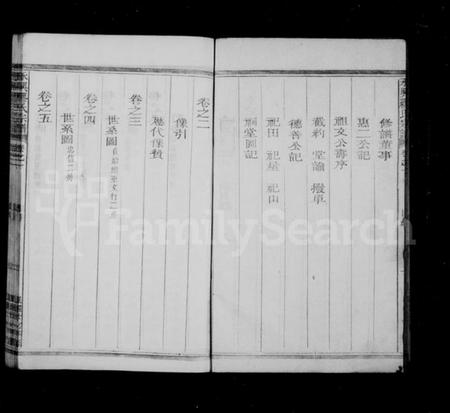 修譜董事
惠二公記
祖文公壽序
截約 堂諭 撥單
德善公記
祀田 祀屋 祀山
祠堂圖記
卷之二
像引
歷代像贊
卷之三
世系圖
卷之四
世系圖
卷之五
FamilySearch